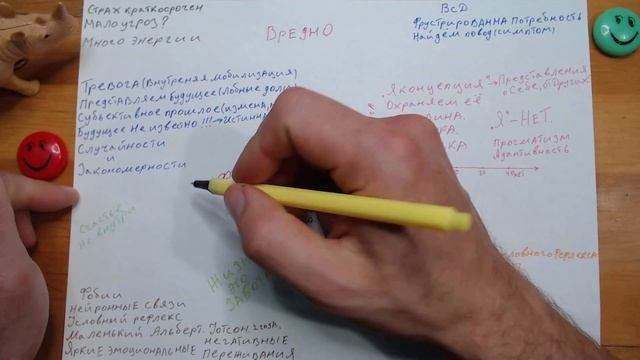 Страх краткосрочен
Мало угроз?
Много энергии
Вредно
ВСД
Фрустрированна потребность
Найдём повод (симптом)
Тревога (внутреняя мобилизация)
Представляем будущее (лобные доли)
Субъективное прошлое (измена,
Будущее неизвестно!!! →
Случайности
и
Закономерности
Я концепция → Представления
о себе, о других
Охраняем её
"Я" - нет.
Прагматизм
Адаптивность
Счастье
не внутри
Жизнь
это
Фобии
Нейронные связи
Условный рефлекс
Маленький Альберт. Уотсон
Яркие эмоциональные негативные
переживания